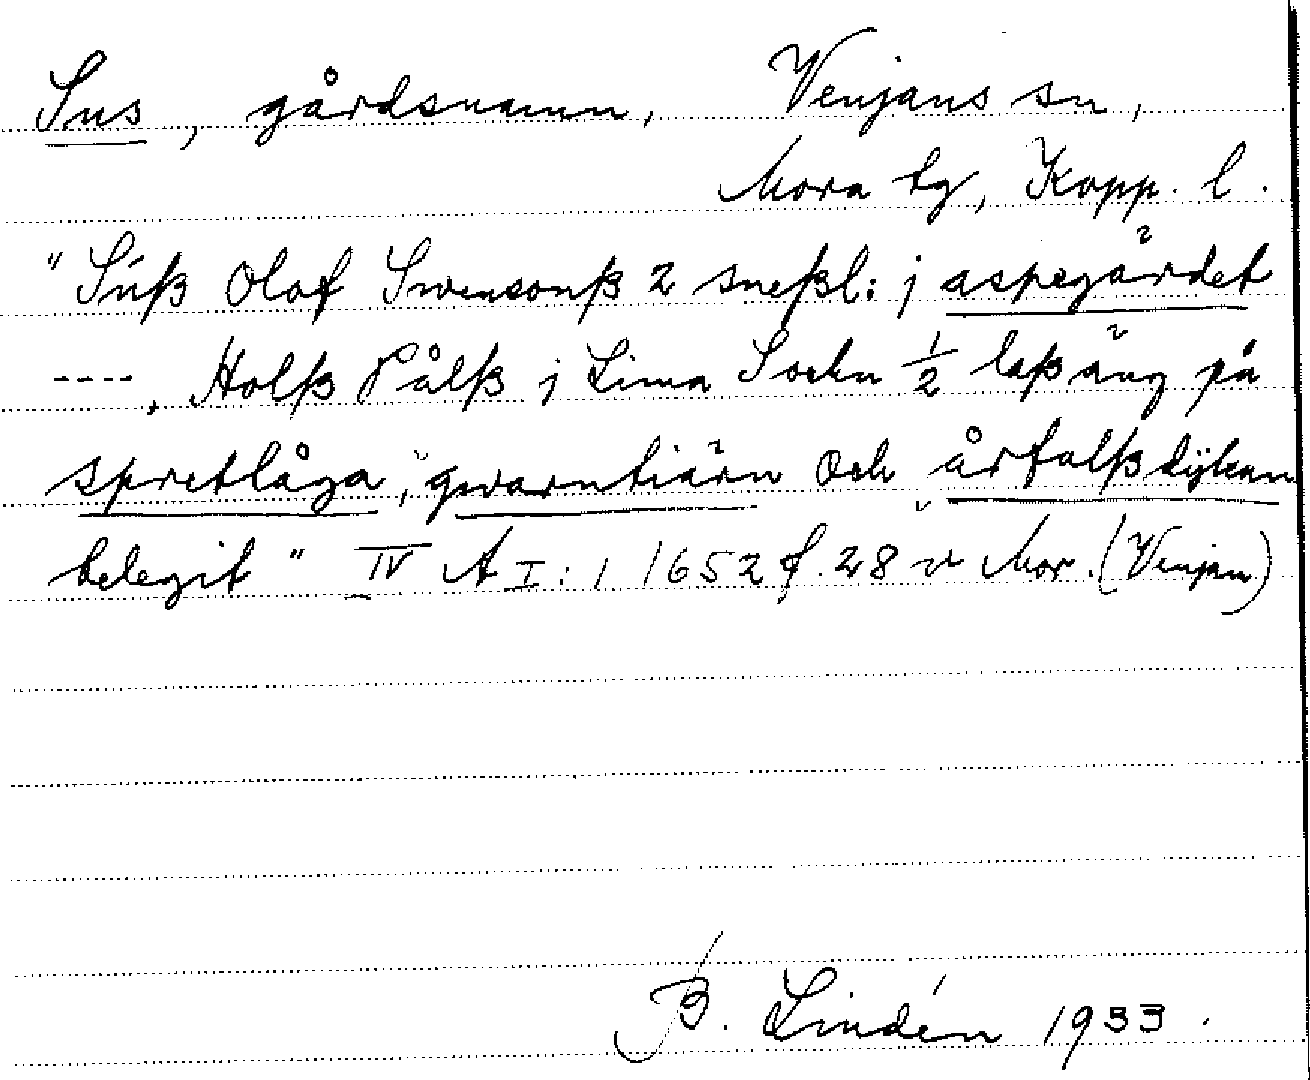 Sus, gårdsnamn, Venjans sn,
Mora tg, Kopp. l.
"Súß Olof Swensonß 2 sneßl: j aspegärdet
----, Holß Pålß j Lima Sockn 1/2 laß äng på
spretlåga, qwarntiärn och årfallß dÿkan
belegit" IV A I:1 1652 f. 28 v Mor. (Venjan)
B. Lindén 1933.